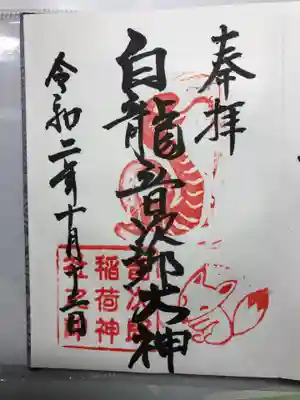 奉拝
白龍音次郎大神
令和二年十月十日
音次郎
稲荷神
社之印